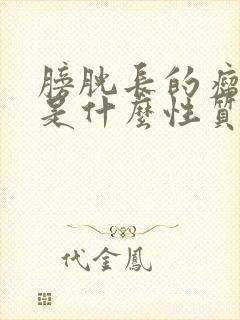 膀胱長的瘤
是什麼性質
代金鳳